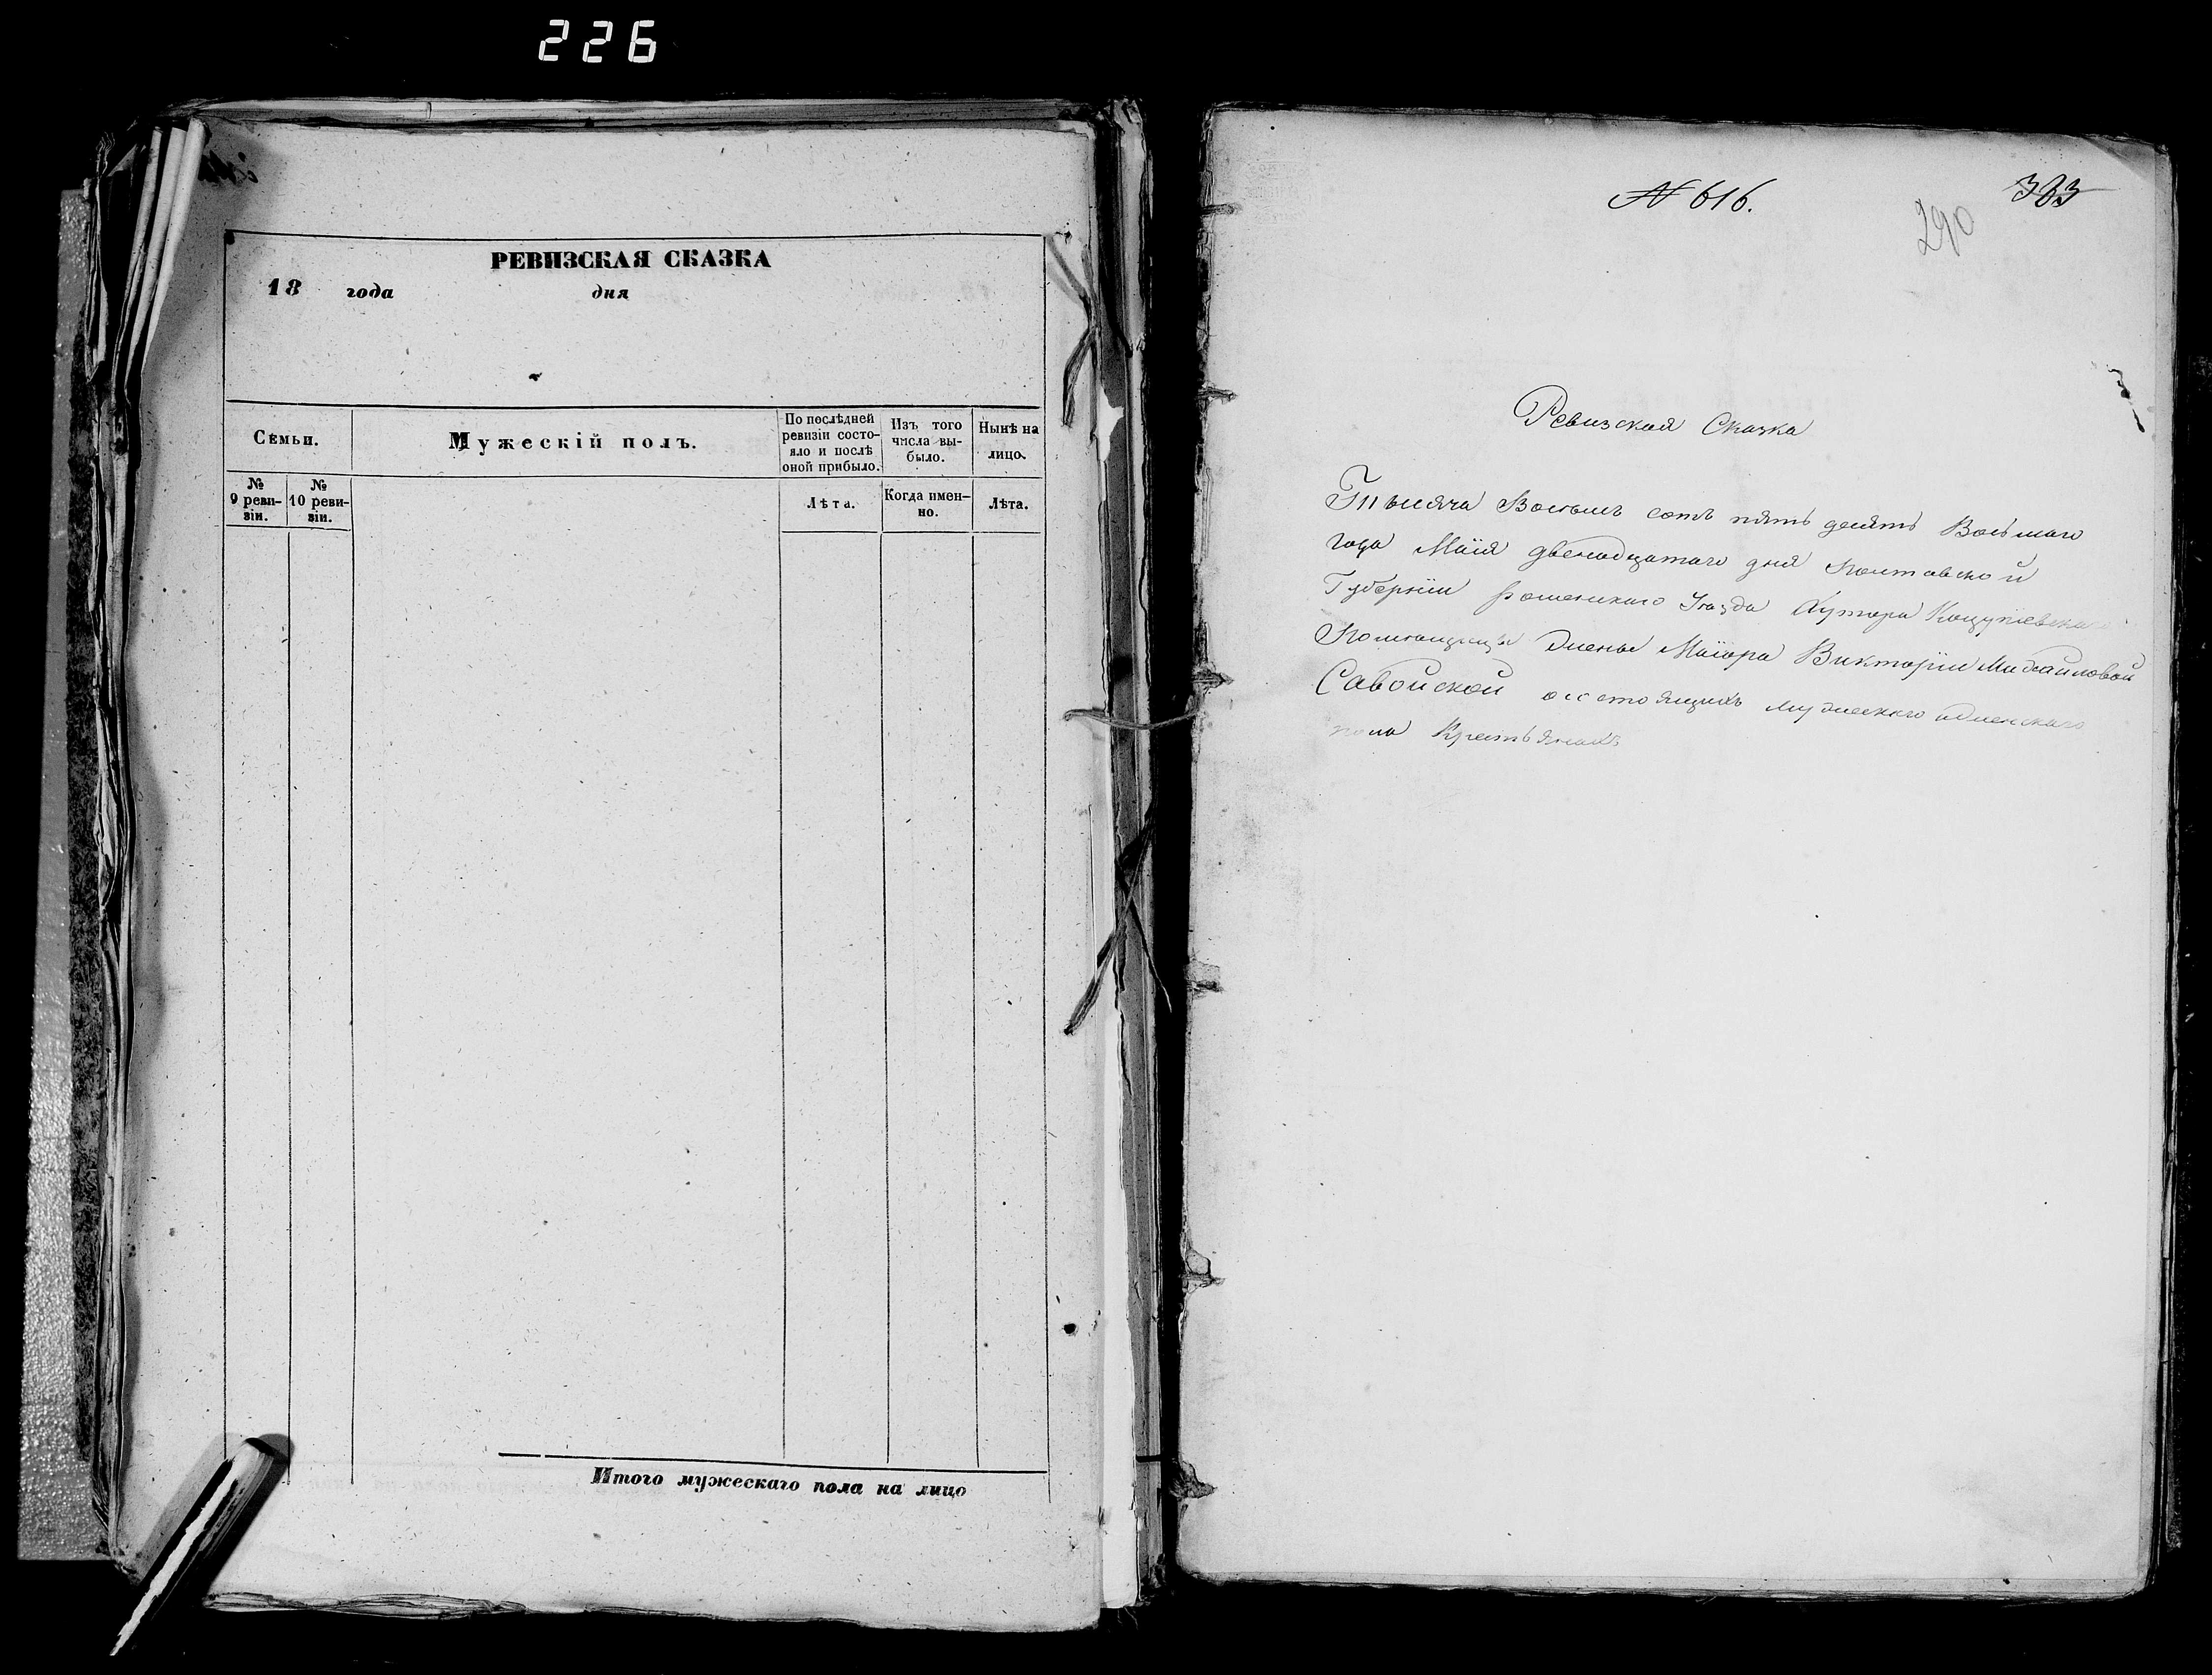 226
РЕВИЗСКАЯ СКАЗКА
18 года дня
Семьи.
Мужескій полъ.
По послѣдней
ревизіи состо-
яло и послѣ
оной прибыло.
Изъ того
числа вы-
было.
Нынѣ на
лицо.
№
9 реви-
зіи.
№
10 реви-
зіи.
Лѣта.
Когда имен-
но.
Лѣта.
Итого мужескаго пола на лицо
№ 616.
383
290
Ревизская Сказка
Тысяча Восемь сотъ пять десятъ Восьмаго
года Маія двенадцатаго дня Полтавской
Губерніи Уезда Хутора
Помещицы жены Маіора Викторіи Михайловой
Савойской о состоящихъ мужескаго и женскаго
пола Крестьянахъ